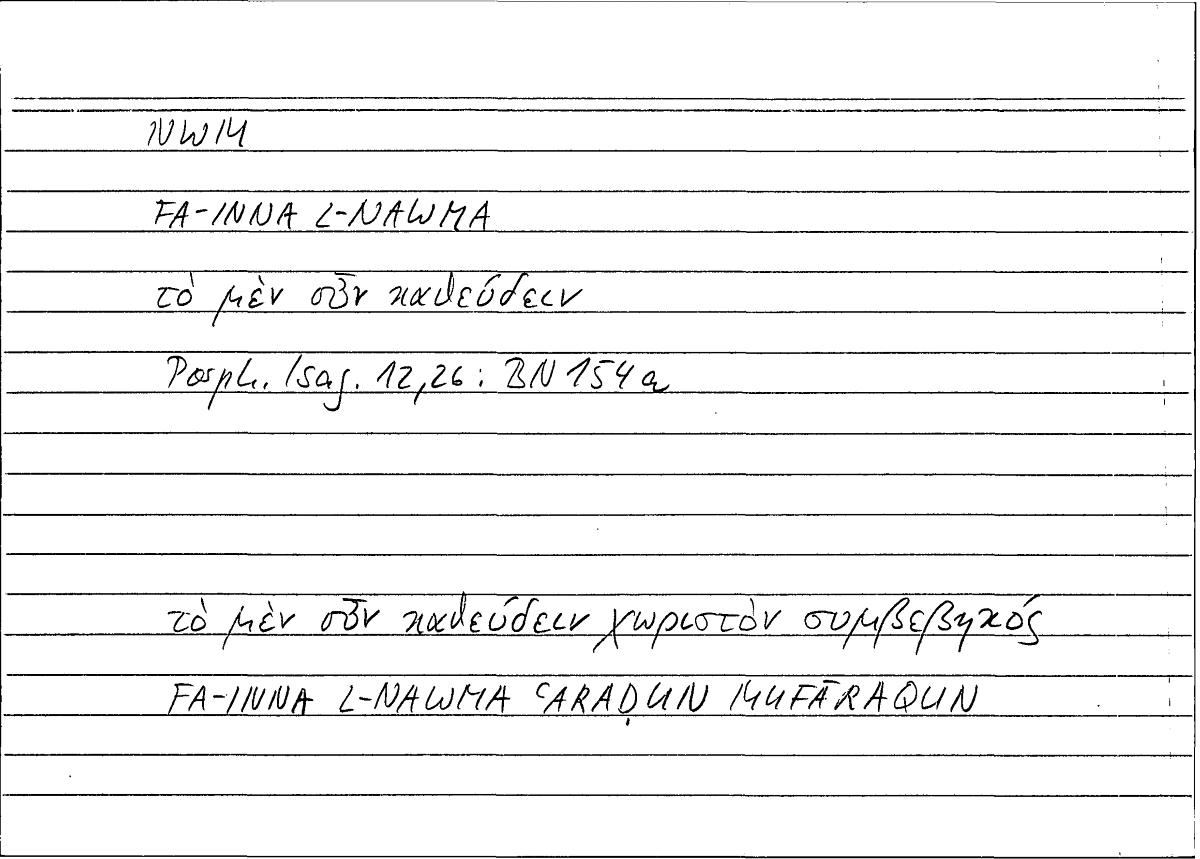 NWM
FA-INNA L-NAWMA
τὸ μὲν οὖν καθεύδειν
Porph. Isag. 12,26: BN 154 a
τὸ μὲν οὖν καθεύδειν χωριστὸν συμβεβηκός
FA-INNA L-NAWMA ʿARAḌUN MUFĀRAQUN